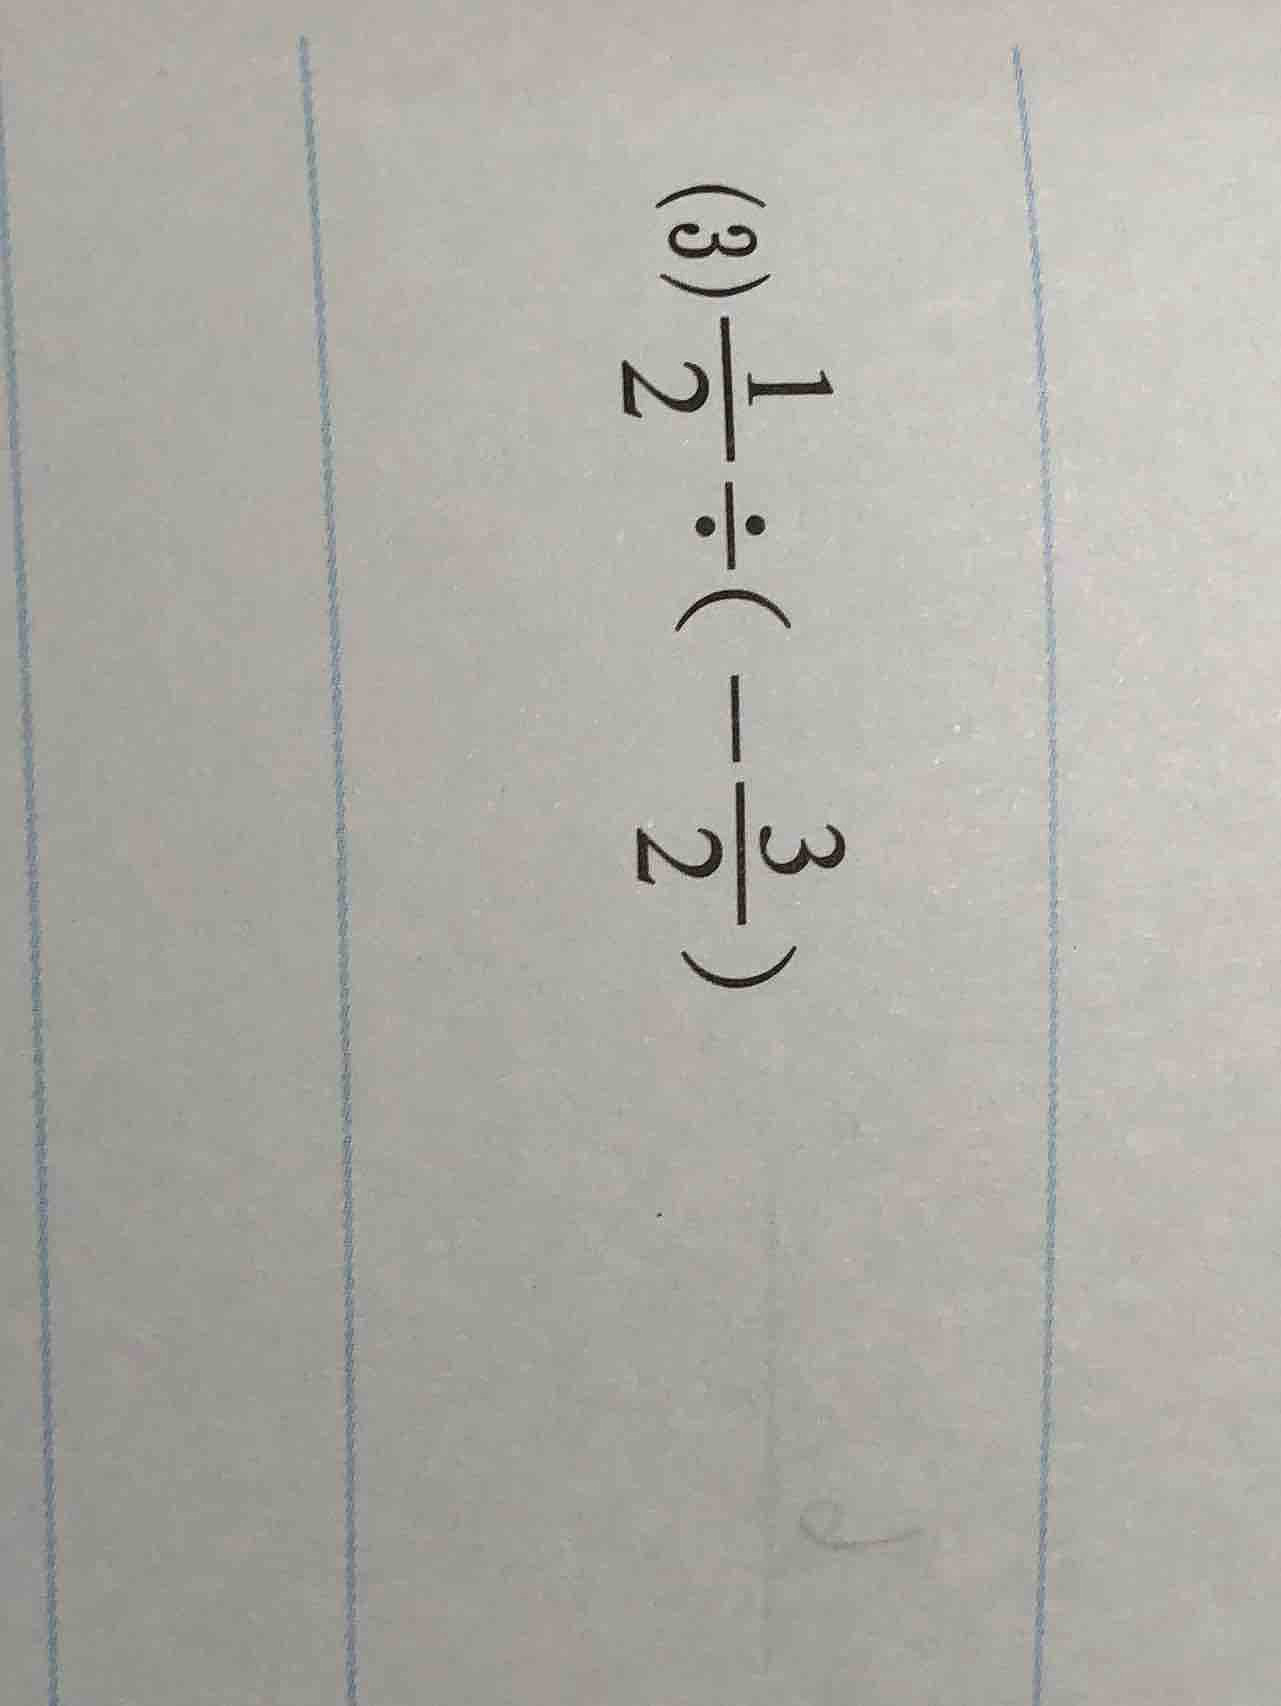 (3) \frac{1}{2} ÷ ( − \frac{3}{2} )